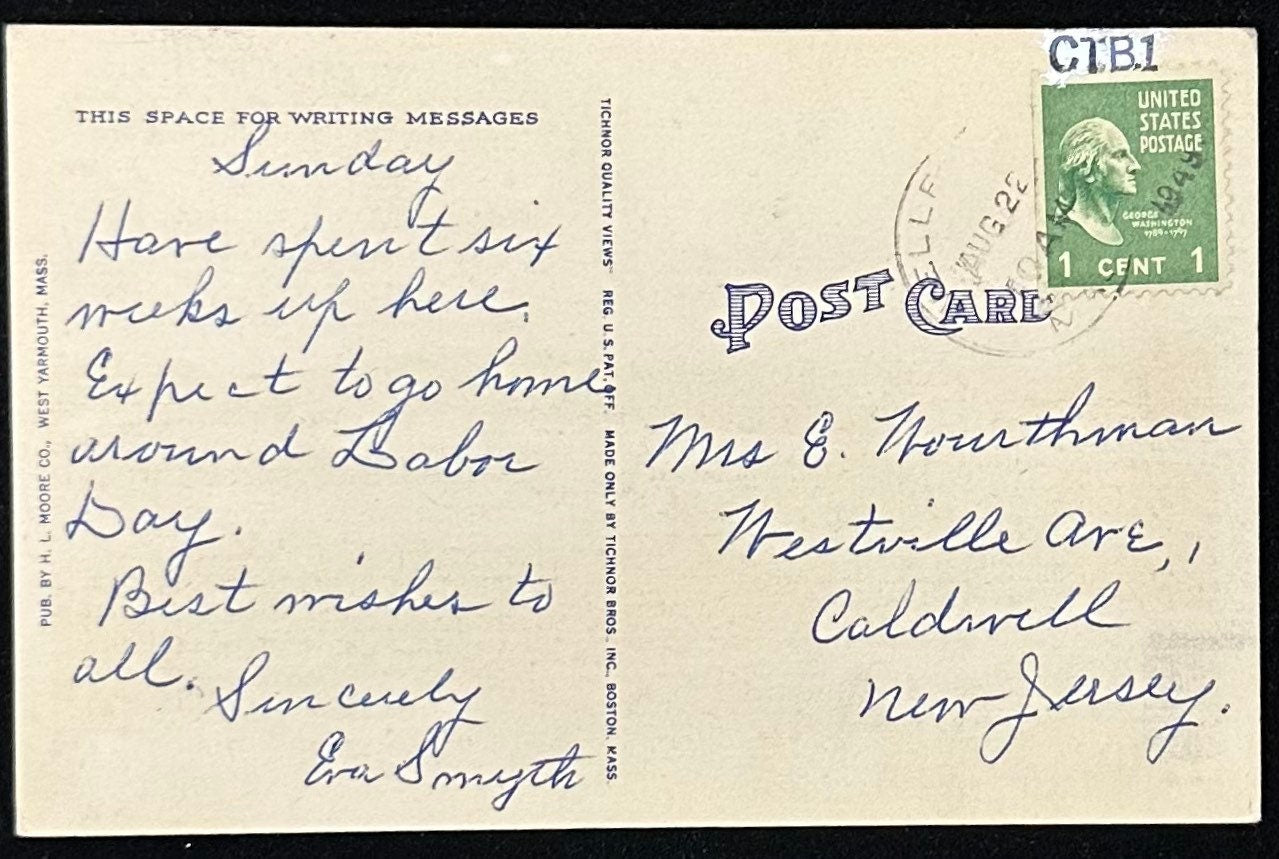 CTB.1
THIS SPACE FOR WRITING MESSAGES
Sunday
Have spent six
weeks up here.
Expect to go home
around Labor
Day.
Best wishes to
all.
Sincerely
Eva Smyth
PUB. BY H. L. MOORE CO., WEST YARMOUTH, MASS.
TICHNOR QUALITY VIEWS" REG. U.S. PAT. OFF. MADE ONLY BY TICHNOR BROS., INC., BOSTON, MASS.
UNITED
STATES
POSTAGE
GEORGE
WASHINGTON
1789-1797
1 CENT 1
AUG 22
1949
POST CARD
Mrs E. Wourthman
Westville Ave.,
Caldwell
New Jersey.